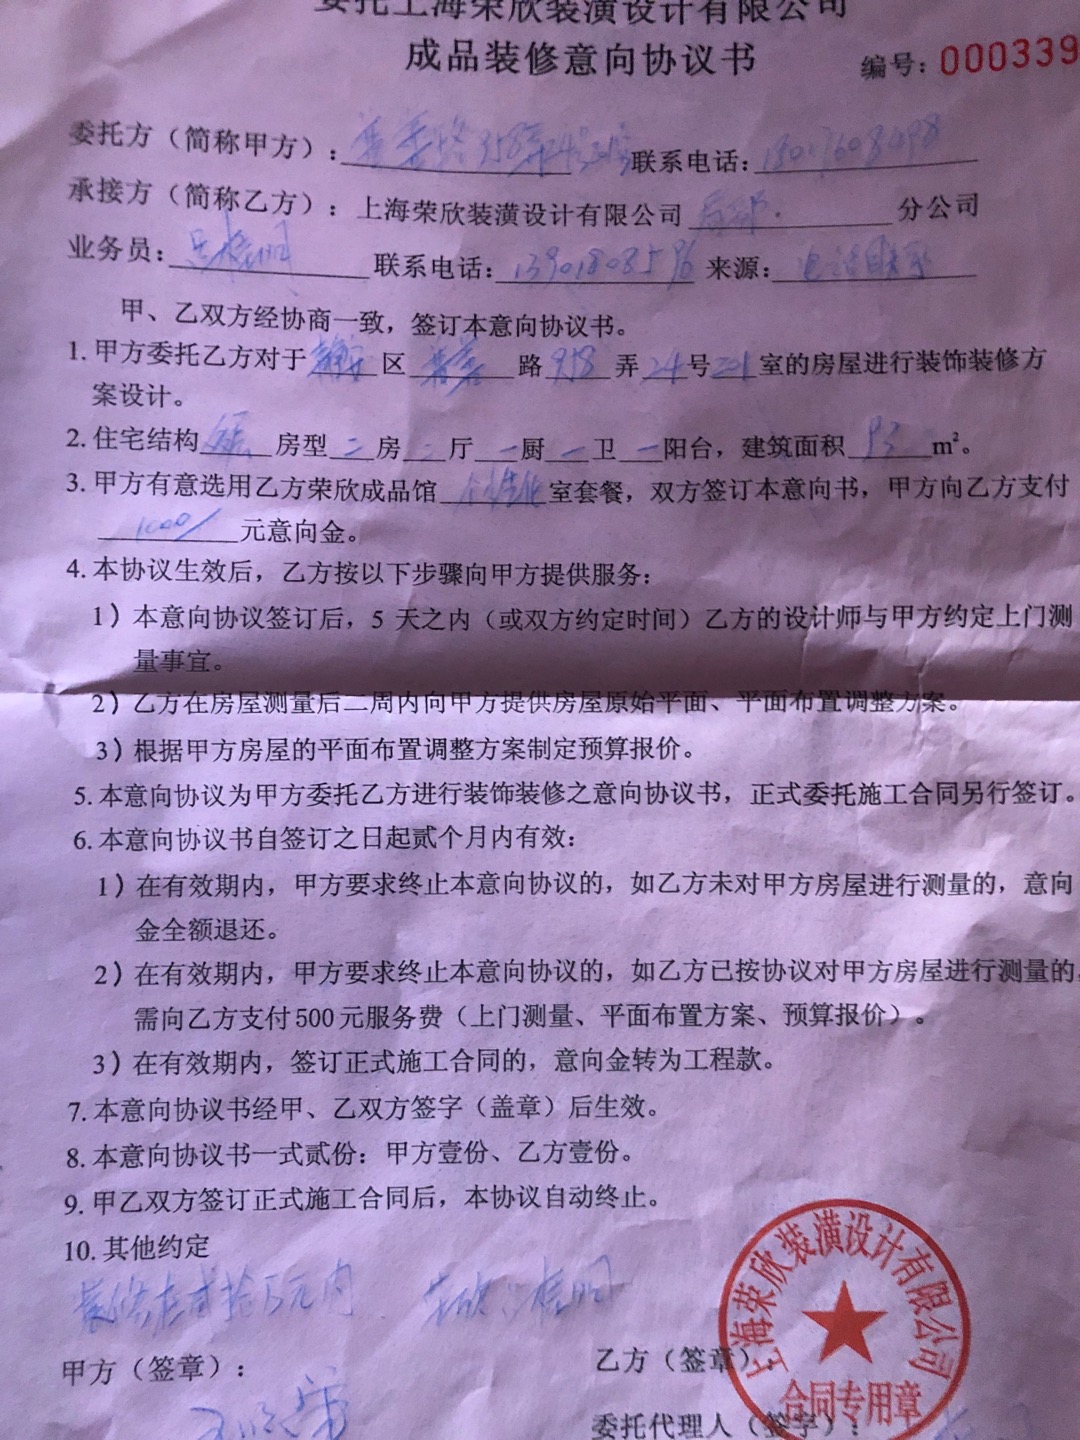 委托上海荣欣装潢设计有限公司
成品装修意向协议书
编号：000339
委托方（简称甲方）： 联系电话：
承接方（简称乙方）：上海荣欣装潢设计有限公司 分公司
业务员： 联系电话： 来源：
甲、乙双方经协商一致，签订本意向协议书。
1. 甲方委托乙方对于 静安 区 路 弄 24 号 201 室的房屋进行装饰装修方
案设计。
2. 住宅结构 房型 二 房 二 厅 一 厨 一 卫 一 阳台，建筑面积 m²。
3. 甲方有意选用乙方荣欣成品馆 个性化 室套餐，双方签订本意向书，甲方向乙方支付
1000/ 元意向金。
4. 本协议生效后，乙方按以下步骤向甲方提供服务：
1）本意向协议签订后，5 天之内（或双方约定时间）乙方的设计师与甲方约定上门测
量事宜。
2）乙方在房屋测量后二周内向甲方提供房屋原始平面、平面布置调整方案。
3）根据甲方房屋的平面布置调整方案制定预算报价。
5. 本意向协议为甲方委托乙方进行装饰装修之意向协议书，正式委托施工合同另行签订。
6. 本意向协议书自签订之日起贰个月内有效：
1）在有效期内，甲方要求终止本意向协议的，如乙方未对甲方房屋进行测量的，意向
金全额退还。
2）在有效期内，甲方要求终止本意向协议的，如乙方已按协议对甲方房屋进行测量的，
需向乙方支付500元服务费（上门测量、平面布置方案、预算报价）。
3）在有效期内，签订正式施工合同的，意向金转为工程款。
7. 本意向协议书经甲、乙双方签字（盖章）后生效。
8. 本意向协议书一式贰份：甲方壹份、乙方壹份。
9. 甲乙双方签订正式施工合同后，本协议自动终止。
10. 其他约定
装修在贰拾万元内 荣欣
甲方（签章）： 乙方（签章）
委托代理人（签字）：
上海荣欣装潢设计有限公司
合同专用章